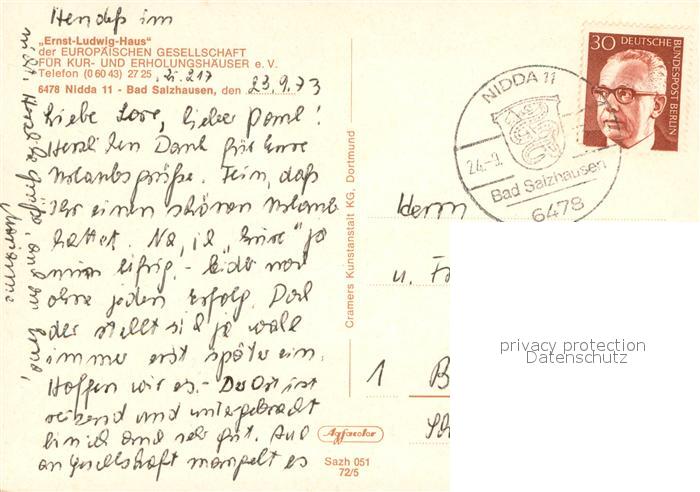 „Ernst-Ludwig-Haus“
der EUROPÄISCHEN GESELLSCHAFT
FÜR KUR- UND ERHOLUNGSHÄUSER e. V.
Telefon (0 60 43) 27 25, Zi. 217
6478 Nidda 11 - Bad Salzhausen, den 23.9.73
Liebe Lore, lieber Paul!
Herzlichen Dank für Eure
Urlaubsgrüße. Fein, daß
Ihr einen schönen Urlaub
hattet. Na, ich „kure“ ja
nun eifrig. - Leider noch
ohne jeden Erfolg. Doch
der stellt sich ja wohl
immer erst später ein.
Hoffen wir es. - Der Ort ist
reizend und untergebracht
bin ich auch sehr gut. Auch
an Gesellschaft mangelt es
nicht. Herzliche Grüße, auch an Erna,
Marianne
Cramers Kunstanstalt KG, Dortmund
Agfacolor
Sazh 051
72/5
30 DEUTSCHE BUNDESPOST BERLIN
NIDDA 11
24.-9.
Bad Salzhausen
6478
Herrn
u.
1 B
privacy protection
Datenschutz